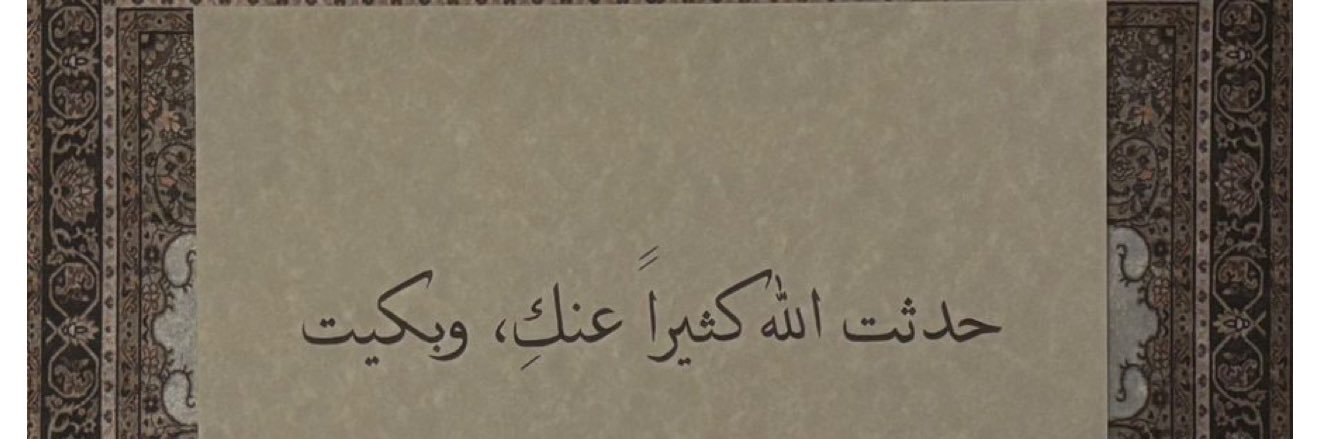 حدثت الله كثيراً عنكِ، وبكيت